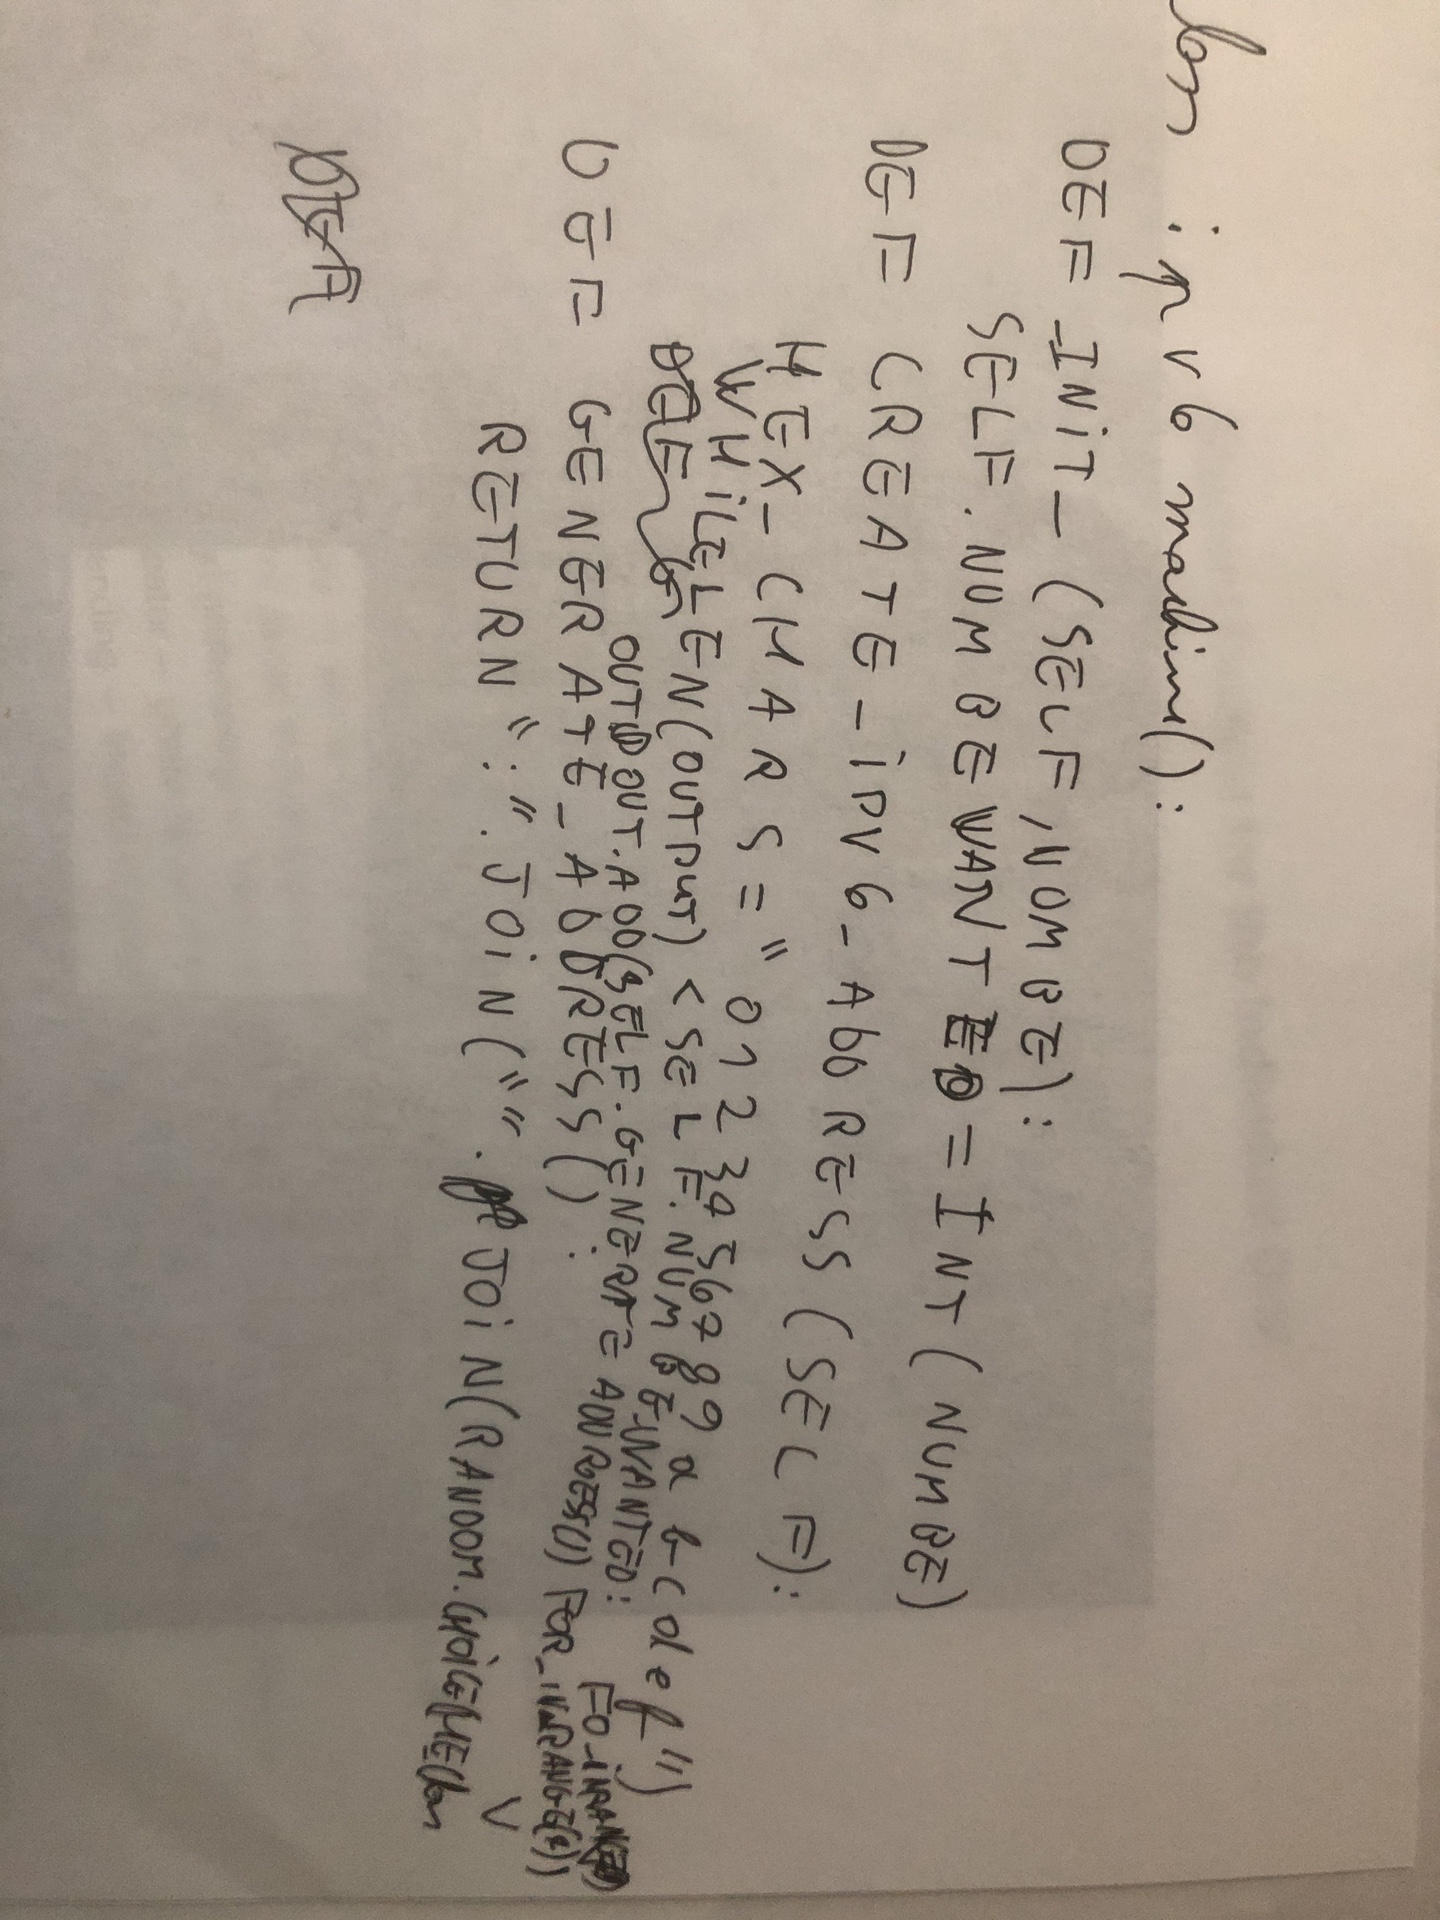 ipv6 machine():
DEF _INiT_ (SELF, NOMBE):
SELF. NOMBE WANTED = INT (NUMBE)
DEF CREATE_ iPV6_ ADDRESS (SELF):
HEX_ CHARS = "0123456789abcdef")
WHiLE LEN(OUTPUT) < SELF. NUMBE_WANTED:
OUT.ADD(SELF. GENERATE ADDRESS()) FOR_ iN RANGE
DEF GENERATE_ ADDRESS():
RETURN ":". JOiN ("". JOiN(RANDOM.